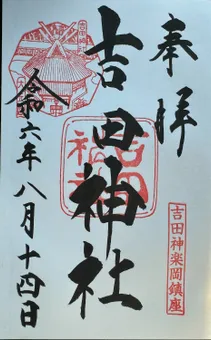 奉拝
吉田神楽岡鎮座
吉田神社
令和六年八月十四日